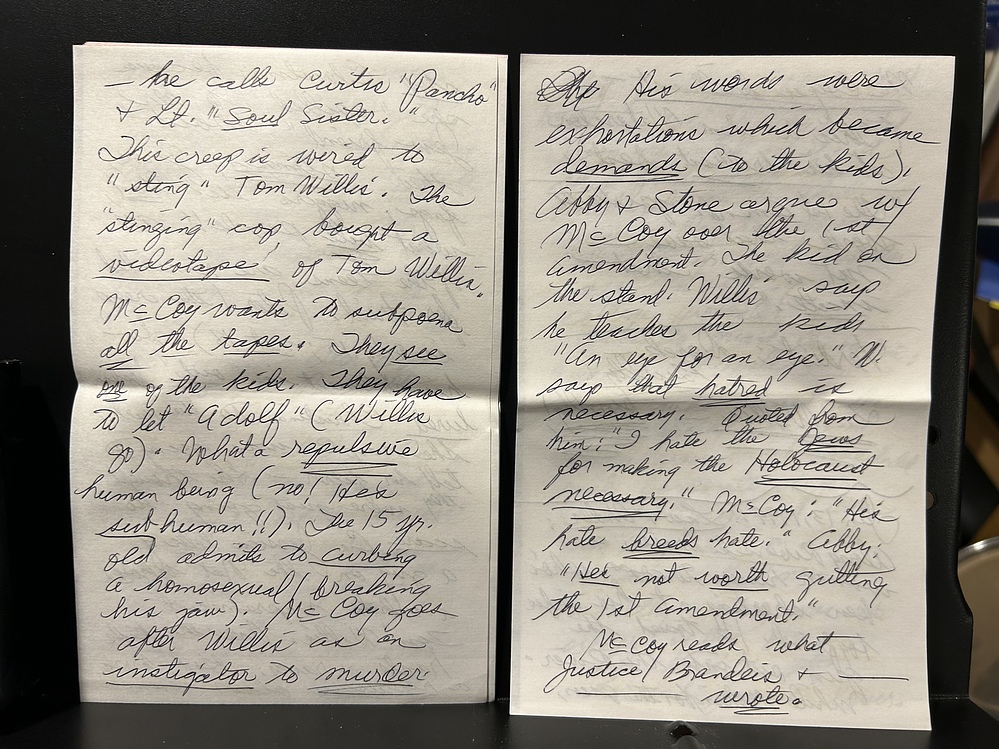 - he calls Curtis "Pancho"
+ Lt. "Soul Sister."
This creep is wired to
"sting" Tom Willis. The
"stinging" cop bought a
videotape of Tom Willis.
McCoy wants to subpoena
all the tapes. They see
one of the kids. They have
to let "Adolf" (Willis
go). What a repulsive
human being (no! He's
subhuman!!). The 15 yr.
old admits to curbing
a homosexual (breaking
his jaw). McCoy goes
after Willis as an
instigator to murder.
His words were
exhortations which became
demands (to the kids).
Abby + Stone argue w/
McCoy over the 1st
Amendment. The kid on
the stand. Willis says
he teaches the kids
"An eye for an eye." W.
says that hatred is
necessary. Quoted from
him: "I hate the Jews
for making the Holocaust
necessary." McCoy: "His
hate breeds hate." Abby:
"He's not worth gutting
the 1st Amendment."
McCoy reads what
Justice Brandeis + ____
wrote.